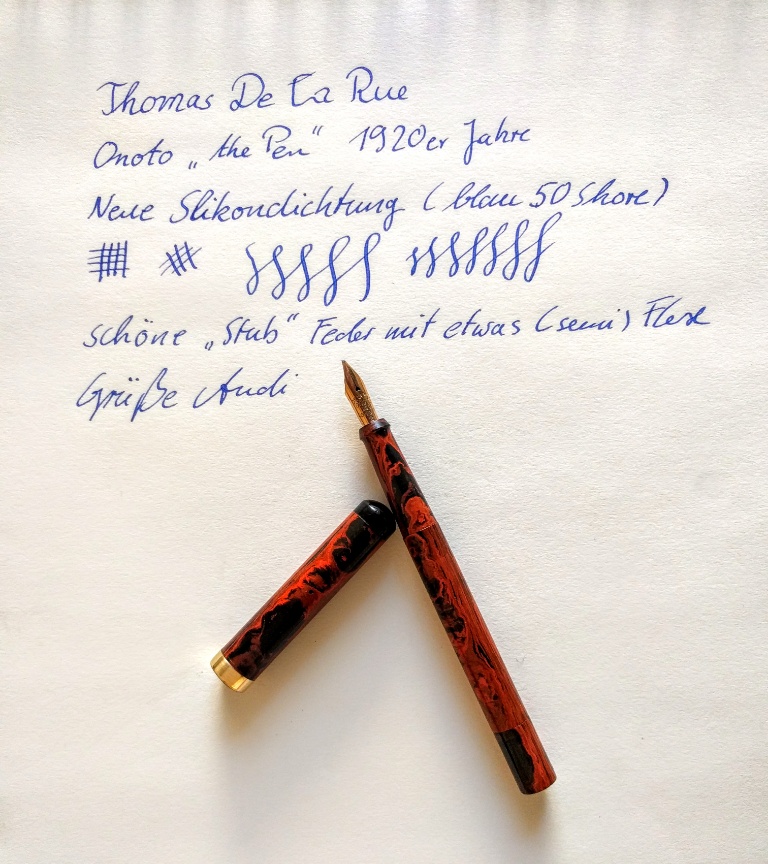 Thomas De La Rue
Onoto „the Pen“ 1920er Jahre
Neue Slikondichtung (blau 50 Shore)
schöne „Stub“ Feder mit etwas (semi) Flex
Grüße Andi